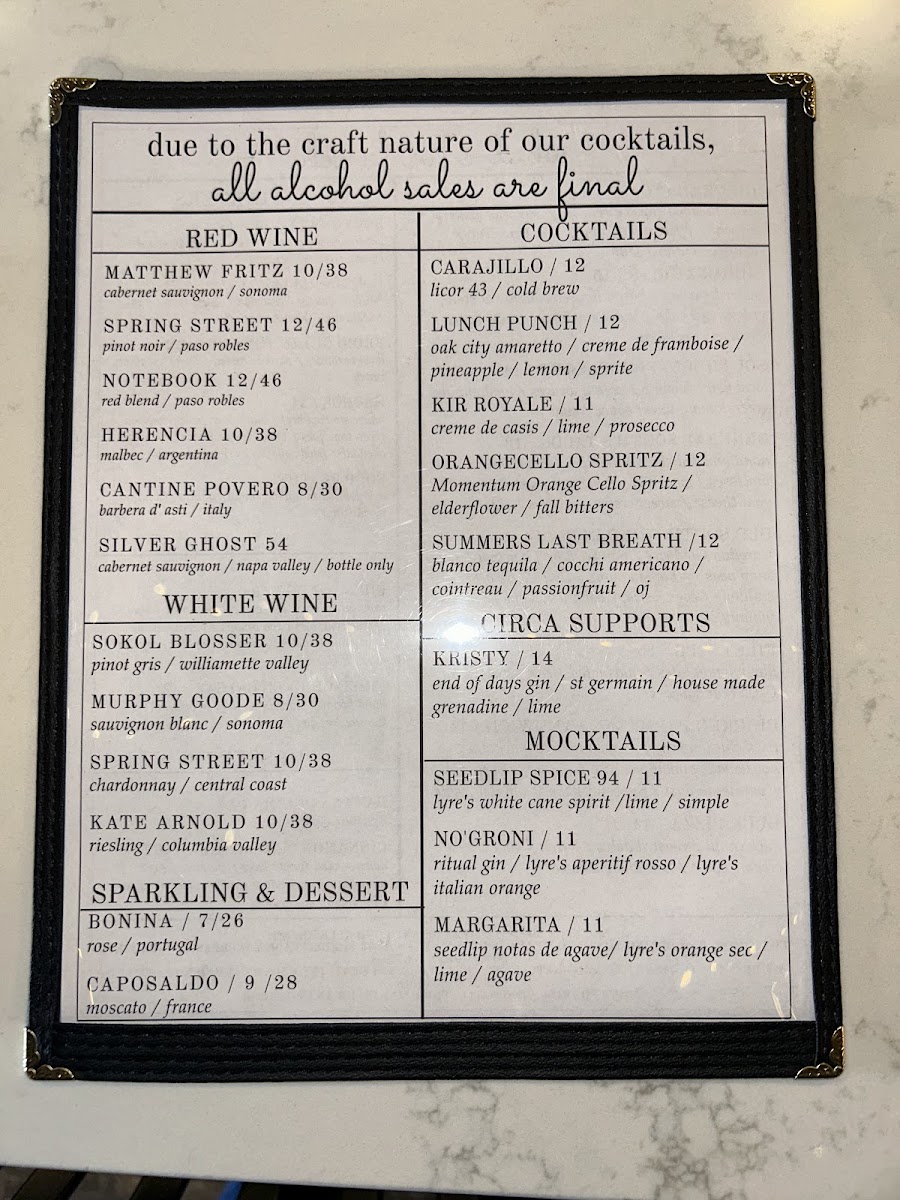 due to the craft nature of our cocktails,
all alcohol sales are final
RED WINE
MATTHEW FRITZ 10/38
cabernet sauvignon / sonoma
SPRING STREET 12/46
pinot noir / paso robles
NOTEBOOK 12/46
red blend / paso robles
HERENCIA 10/38
malbec / argentina
CANTINE POVERO 8/30
barbera d' asti / italy
SILVER GHOST 54
cabernet sauvignon / napa valley / bottle only
WHITE WINE
SOKOL BLOSSER 10/38
pinot gris / williamette valley
MURPHY GOODE 8/30
sauvignon blanc / sonoma
SPRING STREET 10/38
chardonnay / central coast
KATE ARNOLD 10/38
riesling / columbia valley
SPARKLING & DESSERT
BONINA / 7/26
rose / portugal
CAPOSALDO / 9 /28
moscato / france
COCKTAILS
CARAJILLO / 12
licor 43 / cold brew
LUNCH PUNCH / 12
oak city amaretto / creme de framboise /
pineapple / lemon / sprite
KIR ROYALE / 11
creme de casis / lime / prosecco
ORANGECELLO SPRITZ / 12
Momentum Orange Cello Spritz /
elderflower / fall bitters
SUMMERS LAST BREATH /12
blanco tequila / cocchi americano /
cointreau / passionfruit / oj
CIRCA SUPPORTS
KRISTY / 14
end of days gin / st germain / house made
grenadine / lime
MOCKTAILS
SEEDLIP SPICE 94 / 11
lyre's white cane spirit /lime / simple
NO'GRONI / 11
ritual gin / lyre's aperitif rosso / lyre's
italian orange
MARGARITA / 11
seedlip notas de agave/ lyre's orange sec /
lime / agave